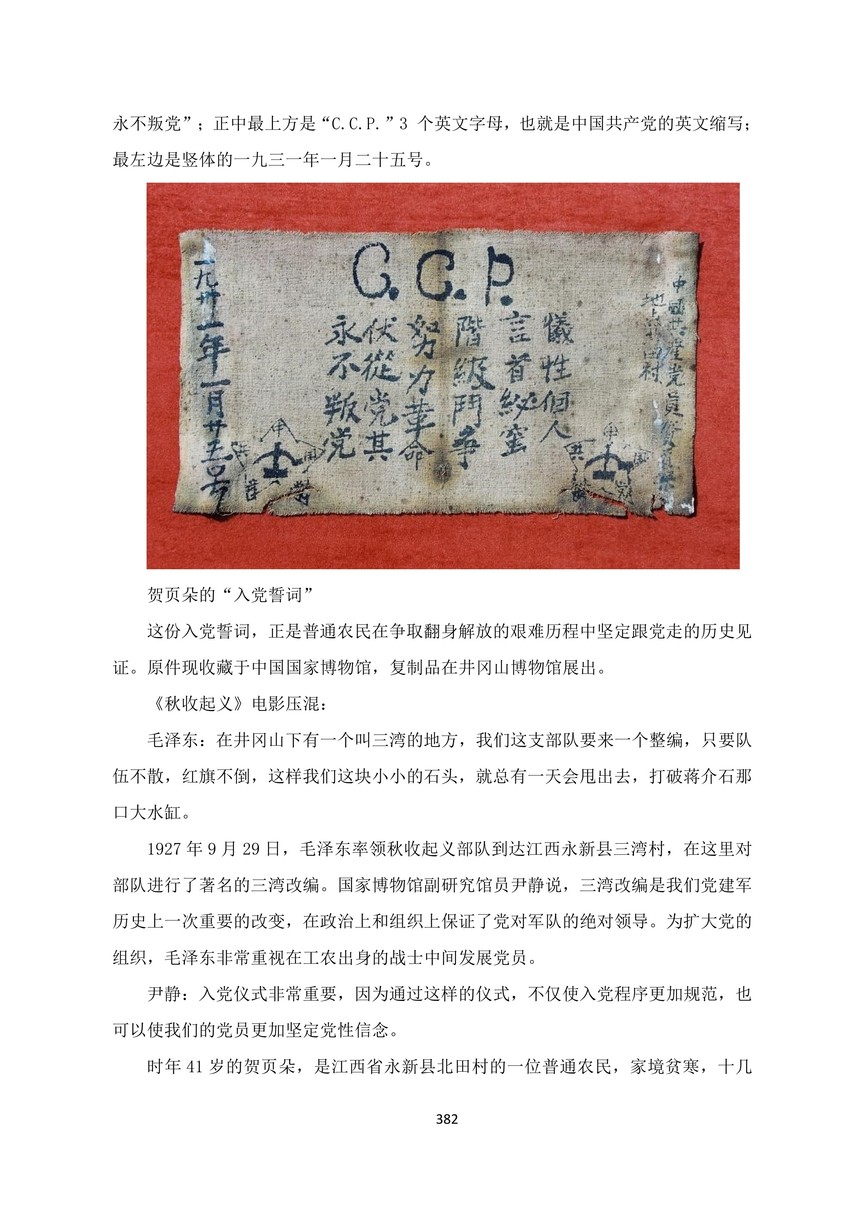 永不叛党”；正中最上方是“C.C.P.”3 个英文字母，也就是中国共产党的英文缩写；
最左边是竖体的一九三一年一月二十五号。
C.C.P.
中國共產党員
地點
田村
犠性個人
言首紗蜜
階級鬥爭
努力革命
伏從党其
永不叛党
一九卅一年一月廿五号
中
國
共
中
國
共
贺页朵的“入党誓词”
这份入党誓词，正是普通农民在争取翻身解放的艰难历程中坚定跟党走的历史见
证。原件现收藏于中国国家博物馆，复制品在井冈山博物馆展出。
《秋收起义》电影压混：
毛泽东：在井冈山下有一个叫三湾的地方，我们这支部队要来一个整编，只要队
伍不散，红旗不倒，这样我们这块小小的石头，就总有一天会甩出去，打破蒋介石那
口大水缸。
1927 年 9 月 29 日，毛泽东率领秋收起义部队到达江西永新县三湾村，在这里对
部队进行了著名的三湾改编。国家博物馆副研究馆员尹静说，三湾改编是我们党建军
历史上一次重要的改变，在政治上和组织上保证了党对军队的绝对领导。为扩大党的
组织，毛泽东非常重视在工农出身的战士中间发展党员。
尹静：入党仪式非常重要，因为通过这样的仪式，不仅使入党程序更加规范，也
可以使我们的党员更加坚定党性信念。
时年 41 岁的贺页朵，是江西省永新县北田村的一位普通农民，家境贫寒，十几
382